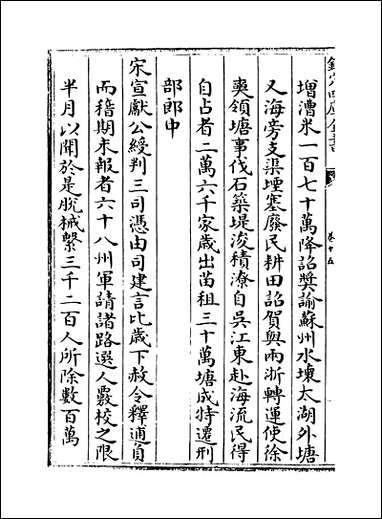 欽定四庫全書
卷十五
增漕米一百七十萬降詔獎諭蘇州水壊太湖外塘
又海旁支渠堙塞廢民耕田詔賀與兩浙轉運使徐
奭領塘事伐石築堤浚積潦自吳江東赴海流民得
自占者二萬六千家歲出苗租三十萬塘成特遷刑
部郎中
宋宣獻公綬判三司憑由司建言比歲下赦令釋逋負
而稽期未報者六十八州軍請諸路選人覈校之限
半月以聞於是脫械繫三千二百人所除數百萬